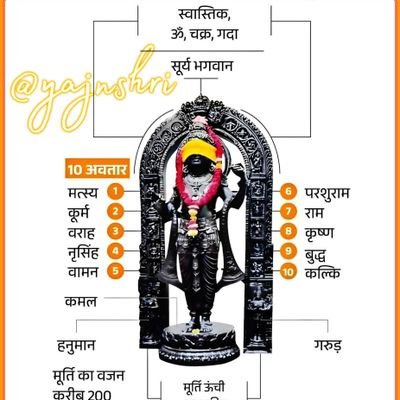 स्वास्तिक,
ॐ, चक्र, गदा
सूर्य भगवान
@yajnshri
10 अवतार
मत्स्य 1
कूर्म 2
वराह 3
नृसिंह 4
वामन 5
6 परशुराम
7 राम
8 कृष्ण
9 बुद्ध
10 कल्कि
कमल
हनुमान
गरुड़
मूर्ति का वजन
करीब 200
मूर्ति ऊंची